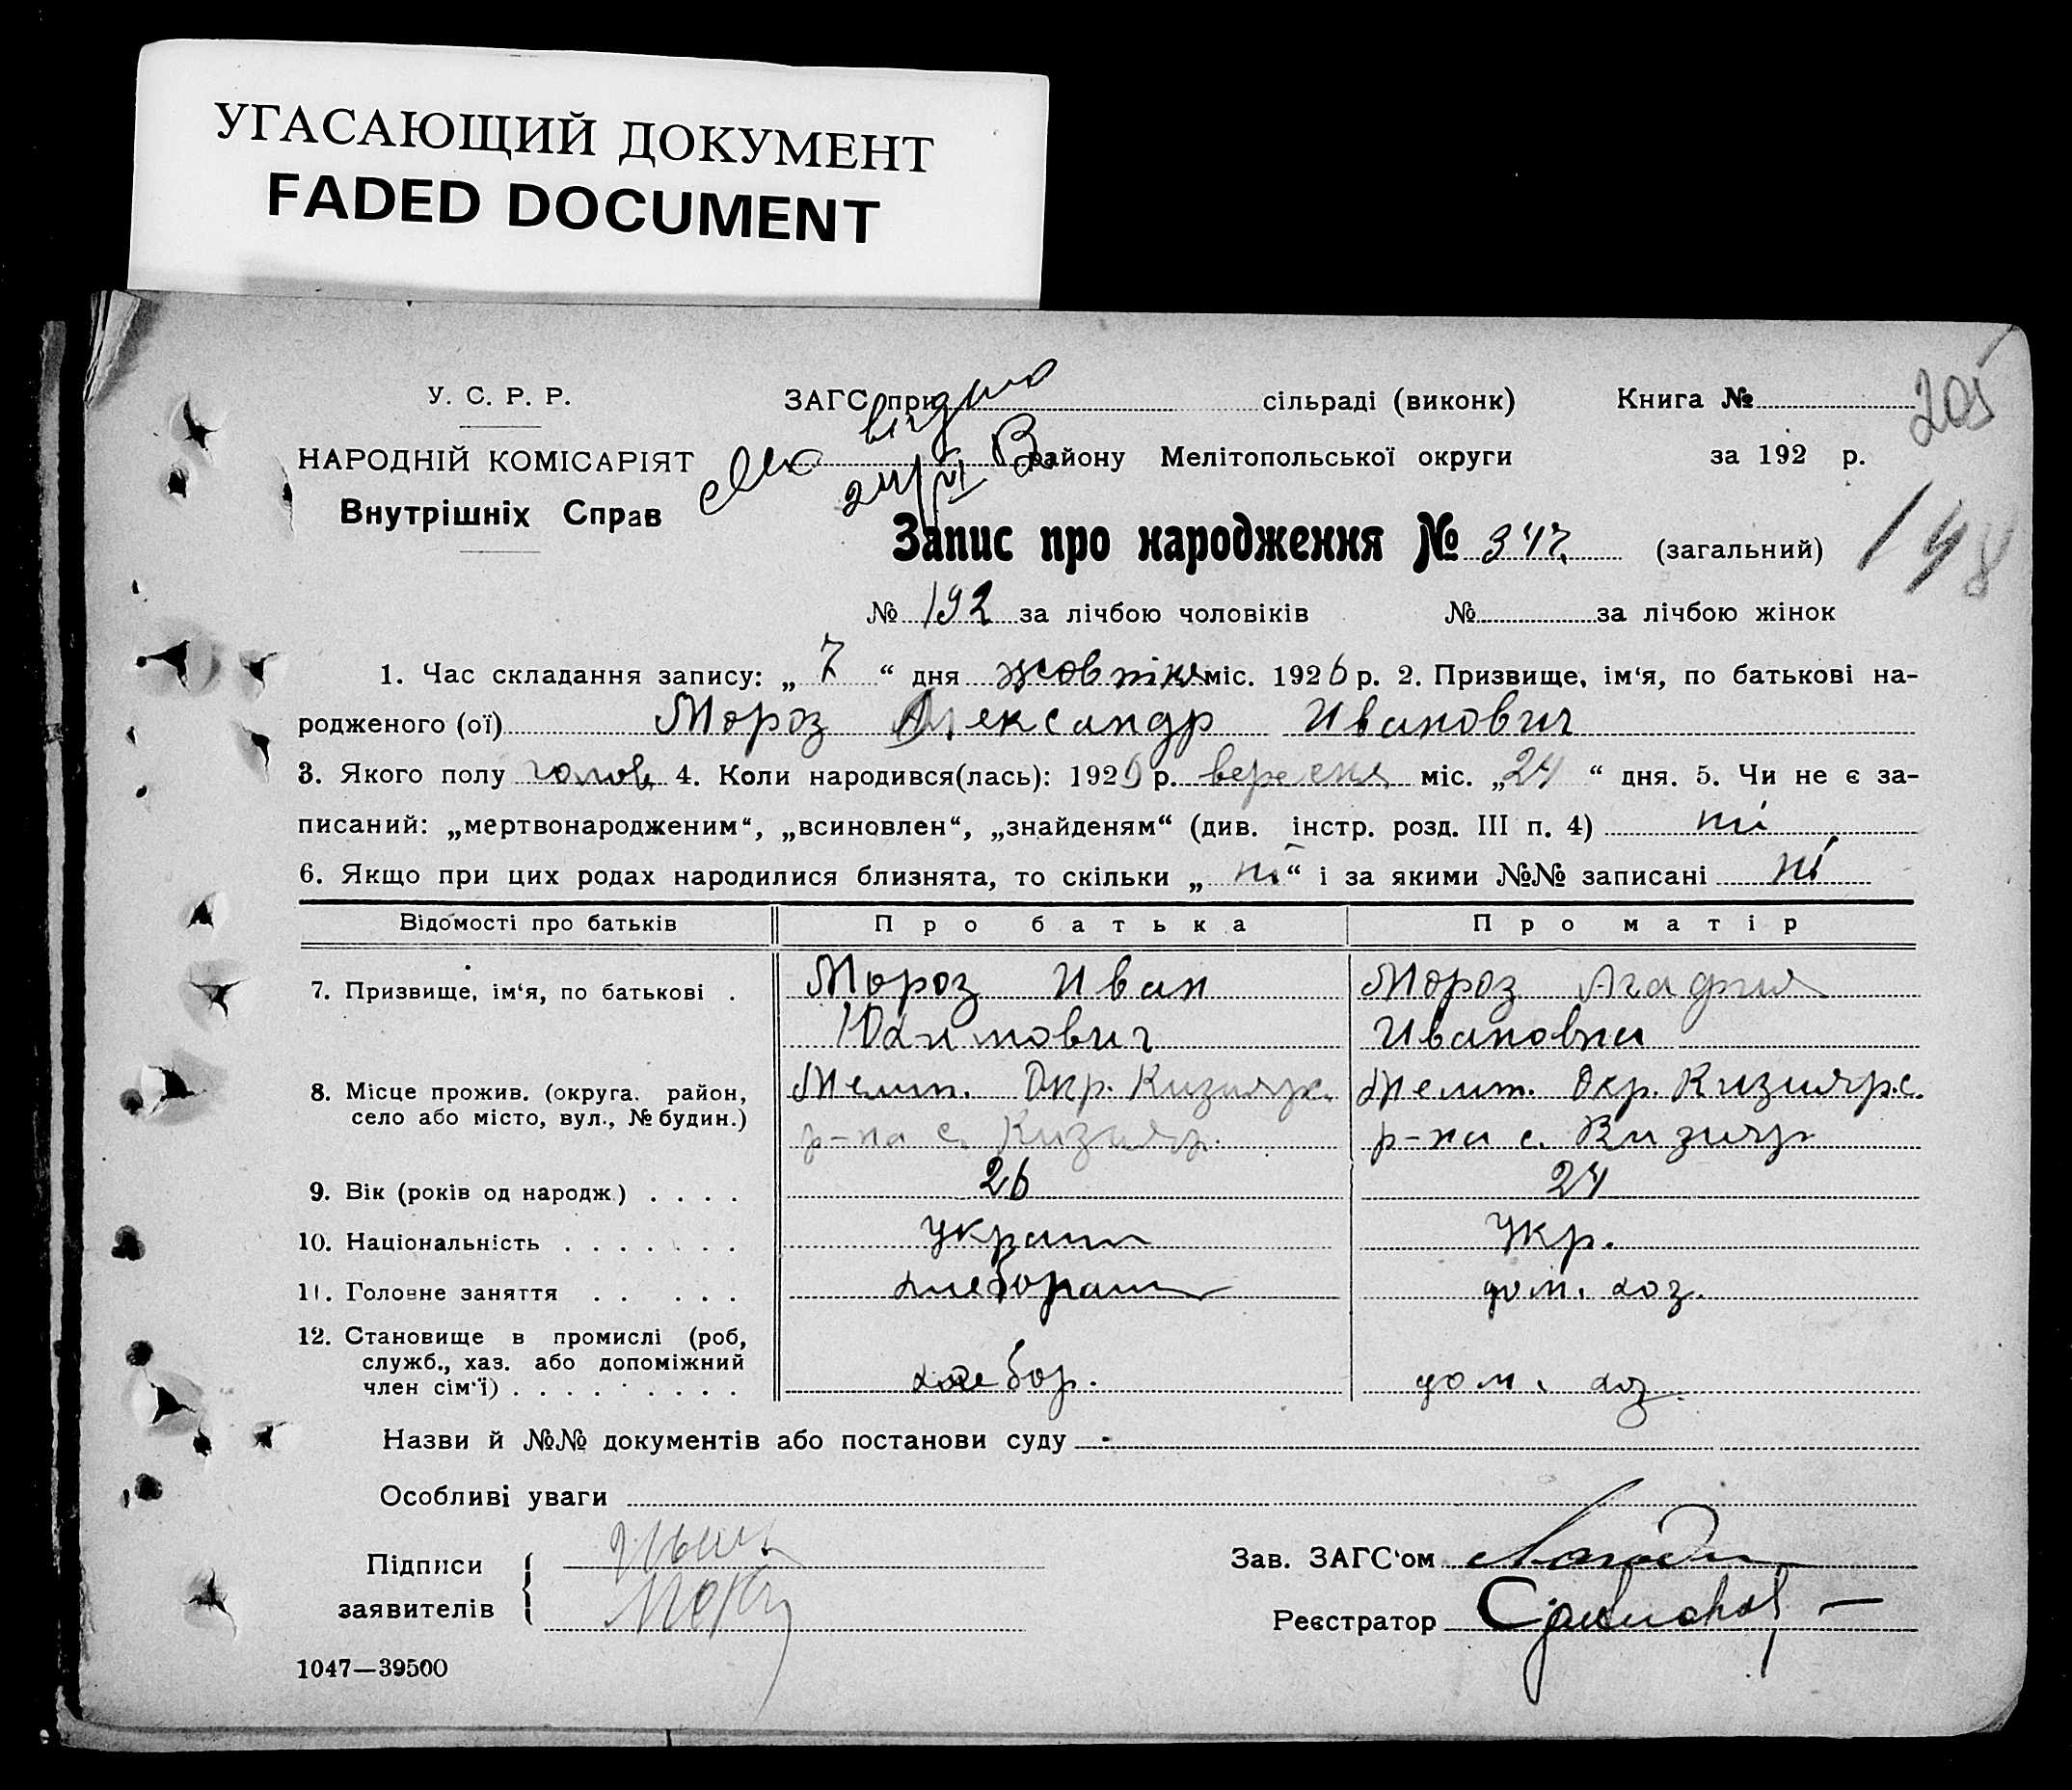 УГАСАЮЩИЙ ДОКУМЕНТ
FADED DOCUMENT
У. С. Р. Р.
ЗАГС при сільраді (виконк)
Книга №
205
НАРОДНІЙ КОМІСАРІЯТ
району Мелітопольської округи
за 192 р.
Внутрішніх Справ
Запис про народження № 347 (загальний)
148
№ 192 за лічбою чоловіків № за лічбою жінок
1. Час складання запису: „ 7 “ дня жовтня міс. 1926 р. 2. Призвище, ім‘я, по батькові на-
родженого (ої) Мороз Александр Иванович
3. Якого полу чолов. 4. Коли народився(лась): 1926 р. вересня міс. „24 “ дня. 5. Чи не є за-
писаний: „мертвонародженим“, „всиновлен“, „знайденям“ (див. інстр. розд. III п. 4) ні
6. Якщо при цих родах народилися близнята, то скільки „ ні “ і за якими №№ записані ні
Відомості про батьків Про батька Про матір
7. Призвище, ім‘я, по батькові . Мороз Иван Мороз Агафия
Ивановна
8. Місце прожив. (округа. район, Мелит. Окр. Кизиярс. Мелит. Окр. Кизиярс.
село або місто, вул., № будин.) р-на с. Кизияр р-на с. Кизияр
9. Вік (років од народж.) . . . . 26 24
10. Національність . . . . . . . україн укр.
11. Головне заняття . . . . . . хлебораш дом. хоз.
12. Становище в промислі (роб,
служб., хаз. або допоміжний
член сім‘ї) . . . . . . . . . хлебор. дом. хоз.
Назви й №№ документів або постанови суду -
Особливі уваги
Підписи
Зав. ЗАГС‘ом
заявителів
Реєстратор
1047—39500